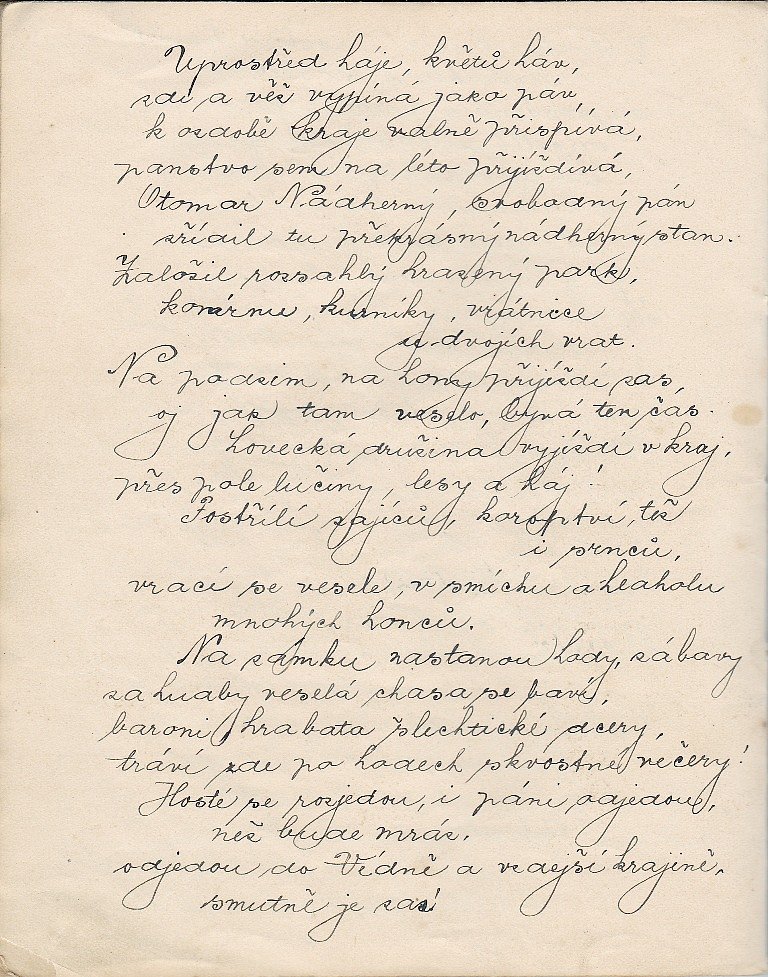 Uprostřed háje, květů háv,
zdi a věž vypíná jako páv,
k ozdobě kraje valně přispívá,
panstvo sem na léto přijíždívá,
Otomar Nádherný, svobodný pán
zřídil tu překrásný nádherný stan.
Založil rozsáhlý hrazený park,
konírnu, kurníky, vrátnice
u dvojích vrat.
Na podzim, na hony přijíždí zas,
oj jak tam veselo, bývá ten čas.
Lovecká družina vyjíždí v kraj,
přes pole lučiny, lesy a háj!
Postřílí zajíců, koroptví, též
i srnců,
vrací se vesele, v smíchu a hlaholu
mnohých honců.
Na zámku nastanou hody, zábavy
za hudby veselá chasa se baví,
baroni, hrabata šlechtické dcery,
tráví zde po hodech skvostné večery!
Hosté se rozjedou, i páni odjedou,
než bude mráz,
odjedou do Vídně a vzdejší krajině,
smutně je zas!